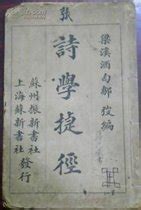 張
梁溪酒匄鄒弢編
詩學捷徑
蘇州振新書社
上海蘇新書社
發行